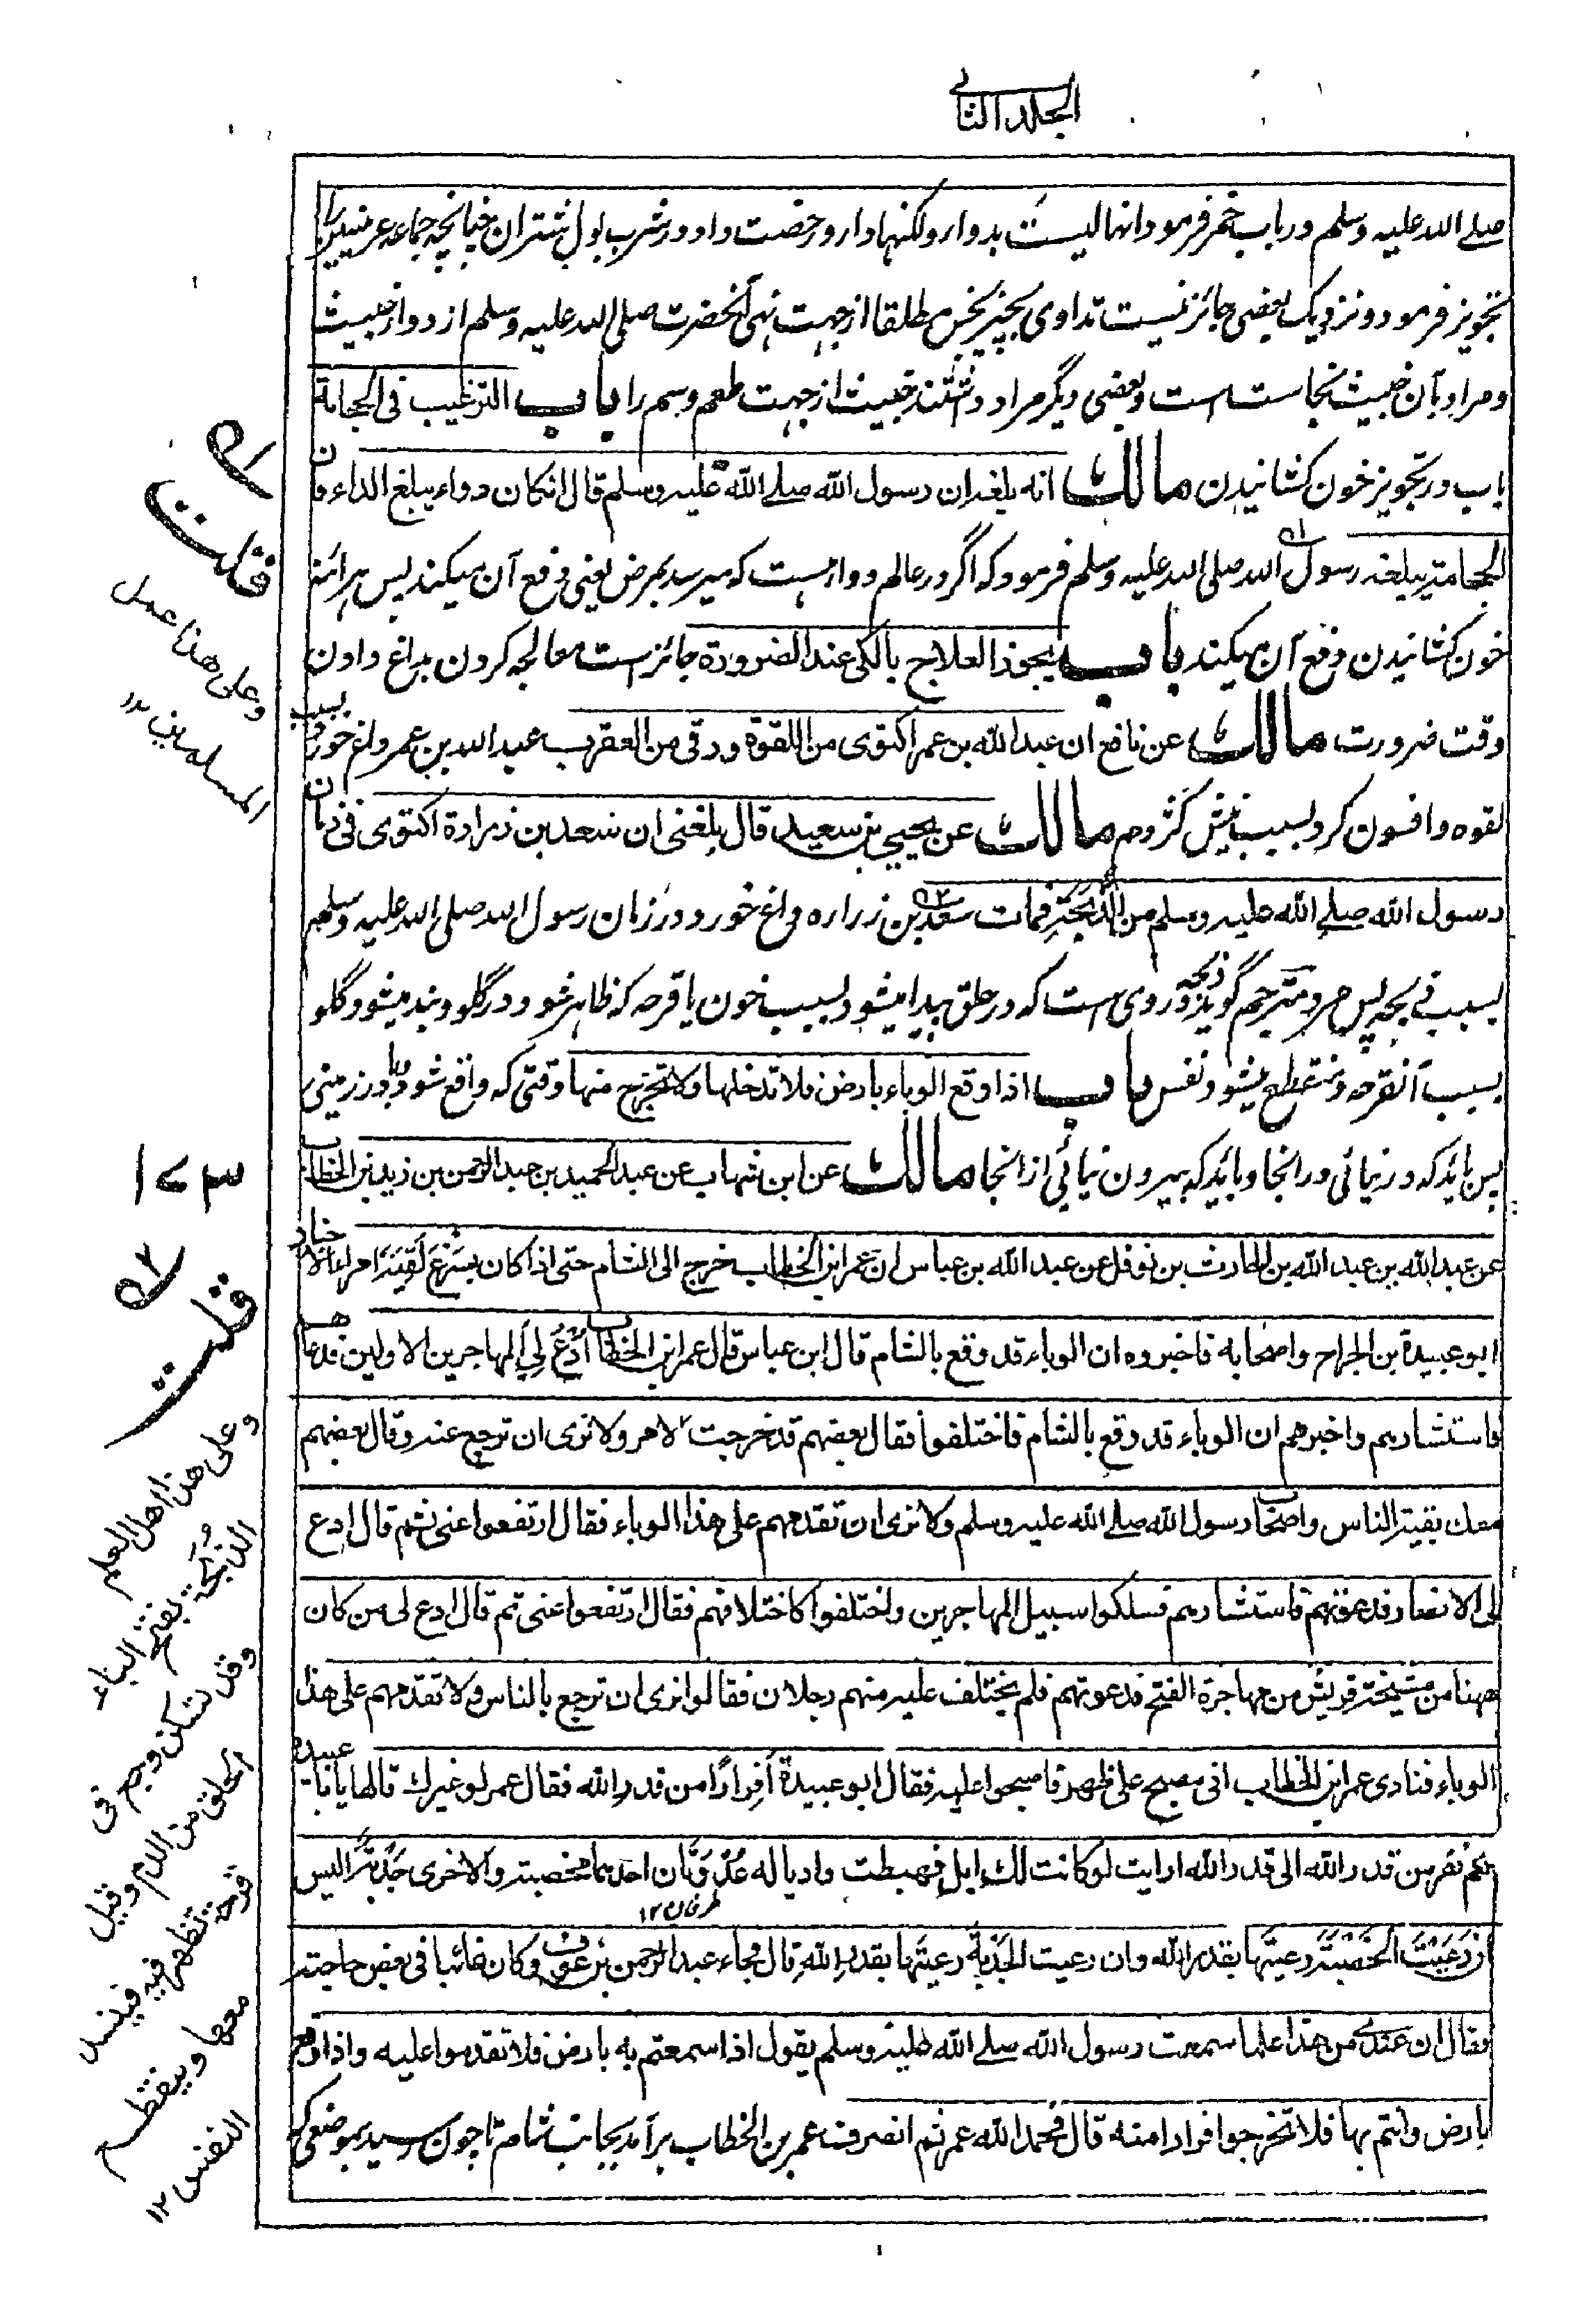 المجلد الثانی
صلے الله علیه وسلم در باب خمر فرمود انها لیست بدواء ولکنها داء و رخصت داد در شرب بول شتران چنانچه جماعه عرنیین را
تجویز فرمود و نزدیک بعضی جائز نیست تداوی بچیز نجس مطلقا از جهت نهی آنحضرت صلی الله علیه وسلم از دواء خبیث
و مراد بآن خبیث نجاست است و بعضی دیگر مراد داشتند خبیث از جهت طعم و سم را باب الترغیب فی الحجامة
باب در تجویز خون کشانیدن مالك انه بلغه ان رسول الله صلے الله علیه وسلم قال ان کان دواء یبلغ الداء فان
الحجامة یبلغه رسول الله صلی الله علیه وسلم فرمود که اگر در عالم دوائیست که میرسد بمرض یعنی دفع آن میکند پس هرآئنه
خون کشانیدن دفع آن میکند باب یجوز العلاج بالکی عند الضرورة جائز است معالجه کردن بداغ دادن
وقت ضرورت مالك عن نافع ان عبد الله بن عمر اکتوی من اللقوة ورقی من العقرب عبد الله بن عمر داغ خورد بسبب
لقوه و افسون کرد بسبب نیش کژدم مالك عن یحیی بن سعید قال بلغنی ان سعد بن زرارة اکتوی فی زمان
رسول الله صلے الله علیه وسلم من الذبحة فمات سعد بن زراره داغ خورد در زمان رسول الله صلی الله علیه وسلم
بسبب ذبحه پس مرد مترجم گوید ذبحه دردی است که در حلق پیدا میشود بسبب خون یا قرحه که ظاهر شود در گلو و بند میشود گلو
بسبب آنقرحه و منقطع میشود نفس باب اذا وقع الوباء بارض فلا تدخلها ولا تخرج منها وقتی که واقع شود وبا در زمینی
پس باید که در نیائی در انجا و باید که بیرون نیائی از انجا مالك عن ابن شهاب عن عبد الحمید بن عبد الرحمن بن زید بن الخطاب
عن عبد الله بن عبد الله بن الحارث بن نوفل عن عبد الله بن عباس ان عمر ابن الخطاب خرج الی الشام حتی اذا کان بسرغ لقیه امراء الاجناد
ابو عبیدة بن الجراح واصحابه فاخبروه ان الوباء قد وقع بالشام قال ابن عباس قال عمر ابن الخطاب ادع لی المهاجرین الاولین فدعاهم
فاستشارهم واخبرهم ان الوباء قد وقع بالشام فاختلفوا فقال بعضهم قد خرجت لامر ولا نری ان ترجع عنه وقال بعضهم
معك بقیة الناس واصحاب رسول الله صلے الله علیه وسلم ولا نری ان تقدمهم علی هذا الوباء فقال ارتفعوا عنی ثم قال ادع
لی الانصار فدعوتهم فاستشارهم فسلکوا سبیل المهاجرین واختلفوا کاختلافهم فقال ارتفعوا عنی ثم قال ادع لی من کان
ههنا من مشیخة قریش من مهاجرة الفتح فدعوتهم فلم یختلف علیه منهم رجلان فقالوا نری ان ترجع بالناس ولا تقدمهم علی هذا
الوباء فنادی عمر ابن الخطاب انی مصبح علی ظهر فاصبحوا علیه فقال ابو عبیدة أفرارا من قدر الله فقال عمر لو غیرك قالها یا ابا عبیدة
نعم نفر من قدر الله الی قدر الله ارایت لو کانت لك ابل فهبطت وادیا له عدوتان احدیهما مخصبة والاخری جدبة الیس
طرفان ۱۲
ان رعیت الخصبة رعیتها بقدر الله وان رعیت الجدبة رعیتها بقدر الله قال فجاء عبد الرحمن بن عوف وکان غائبا فی بعض حاجته
فقال ان عندی من هذا علما سمعت رسول الله صلے الله علیه وسلم یقول اذا سمعتم به بارض فلا تقدموا علیه واذا وقع
بارض وانتم بها فلا تخرجوا فرارا منه قال فحمد الله عمر ثم انصرف عمر بن الخطاب برآمد بجانب شام تا چون رسید بموضعی که
۱
قلت
وعلی هذا عمل
المسلمین
۱۷۳
۲
قلت
وعلی هذا اهل العلم
الذبحة بفتح الباء
وقد تسکن وجع فی
الحلق من الدم وقیل
قرحة تظهر فیه فینسد
معها وینقطع
النفس ۱۲